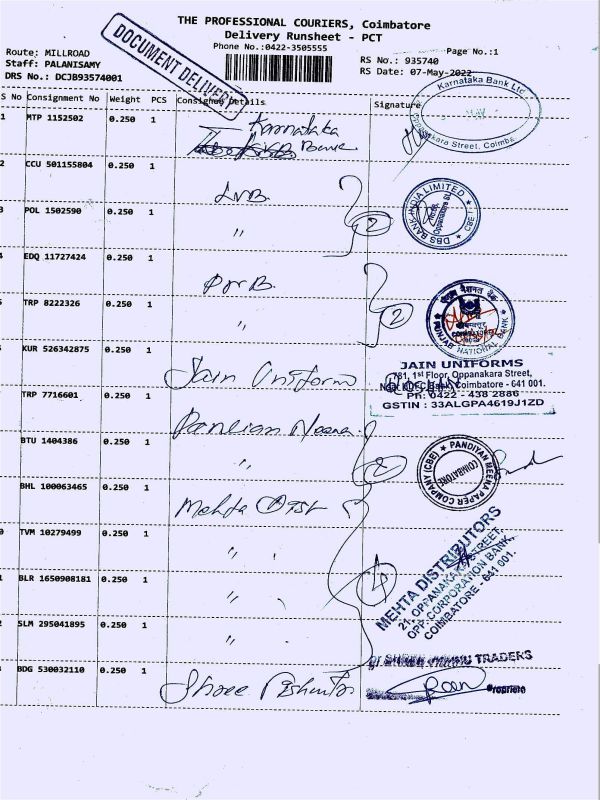 THE PROFESSIONAL COURIERS, Coimbatore
Delivery Runsheet - PCT
Phone No.:0422-3505555
DOCUMENT DELIVERY
Page No.:1
Route: MILLROAD
Staff: PALANISAMY
DRS No.: DCJB93574001
RS No.: 935740
RS Date: 07-May-2022
S No Consignment No Weight PCS Consignee Details Signature
1 MTP 1152502 0.250 1 Karnataka
Bank
Karnataka Bank Ltc
Oppanakara Street, Coimb.
2 CCU 501155804 0.250 1 LVB
3 POL 1502590 0.250 1 "
2
DBS BANK INDIA LIMITED
CBE-1
Oppanakara St
EDQ 11727424 0.250 1 PNB
TRP 8222326 0.250 1 "
2
पंजाब नैशनल बैंक
PUNJAB NATIONAL BANK
KUR 526342875 0.250 1 Jain Uniform
JAIN UNIFORMS
781, 1st Floor, Oppanakara Street,
Near HDFC Bank, Coimbatore - 641 001.
Ph: 0422 - 438 2886
GSTIN : 33ALGPA4619J1ZD
TRP 7716601 0.250 1 Pandian Meena
BTU 1404386 0.250 1 "
2
PANDIYAN MEENA PAPER COMPANY (CBE)
COIMBATORE
BHL 100063465 0.250 1 Mehta Dist
0 TVM 10279499 0.250 1 "
1 BLR 1650908181 0.250 1 "
2 SLM 295041895 0.250 1 "
4
MEHTA DISTRIBUTORS
21, OPPANAKARA STREET,
OPP. CORPORATION BANK,
COIMBATORE - 641 001.
BDG 530032110 0.250 1 Shree
TRADERS
Proprieto